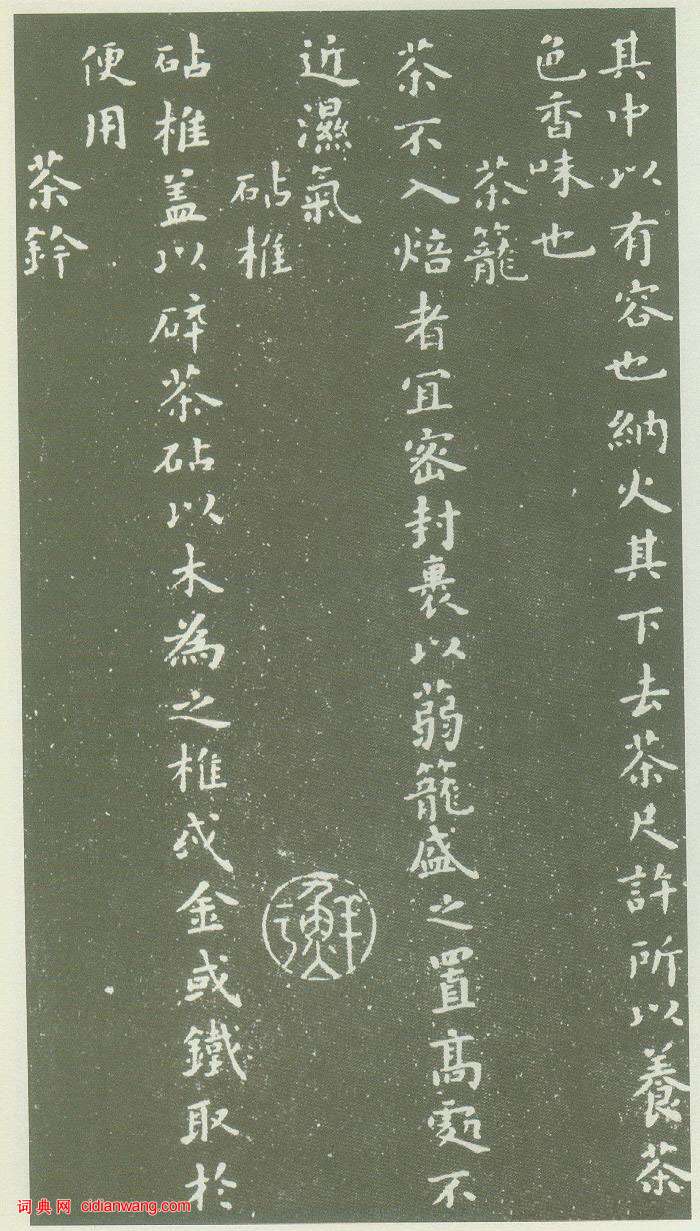 其中以有容也納火其下去茶尺許所以養茶
色香味也
茶籠
茶不入焙者宜密封裹以蒻籠盛之置高處不
近濕氣
砧椎
砧椎盖以碎茶砧以木為之椎或金或鐵取於
便用
茶鈐
词典网 cidianwang.com